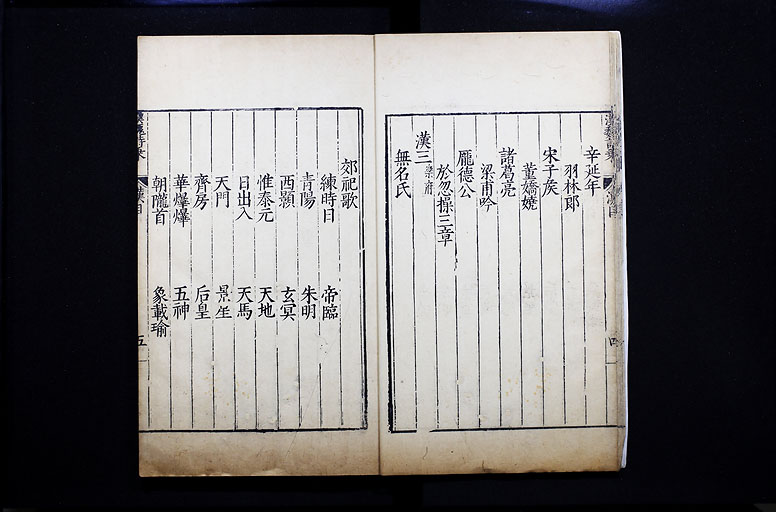 辛延年
羽林郎
宋子矦
董嬌嬈
諸葛亮
梁甫吟
龐德公
於忽操三章
漢三樂府
無名氏
郊祀歌
練時日 帝臨
青陽 朱明
西顥 玄冥
惟泰元 天地
日出入 天馬
天門 景星
齊房 后皇
華爗爗 五神
朝隴首 象載瑜
五